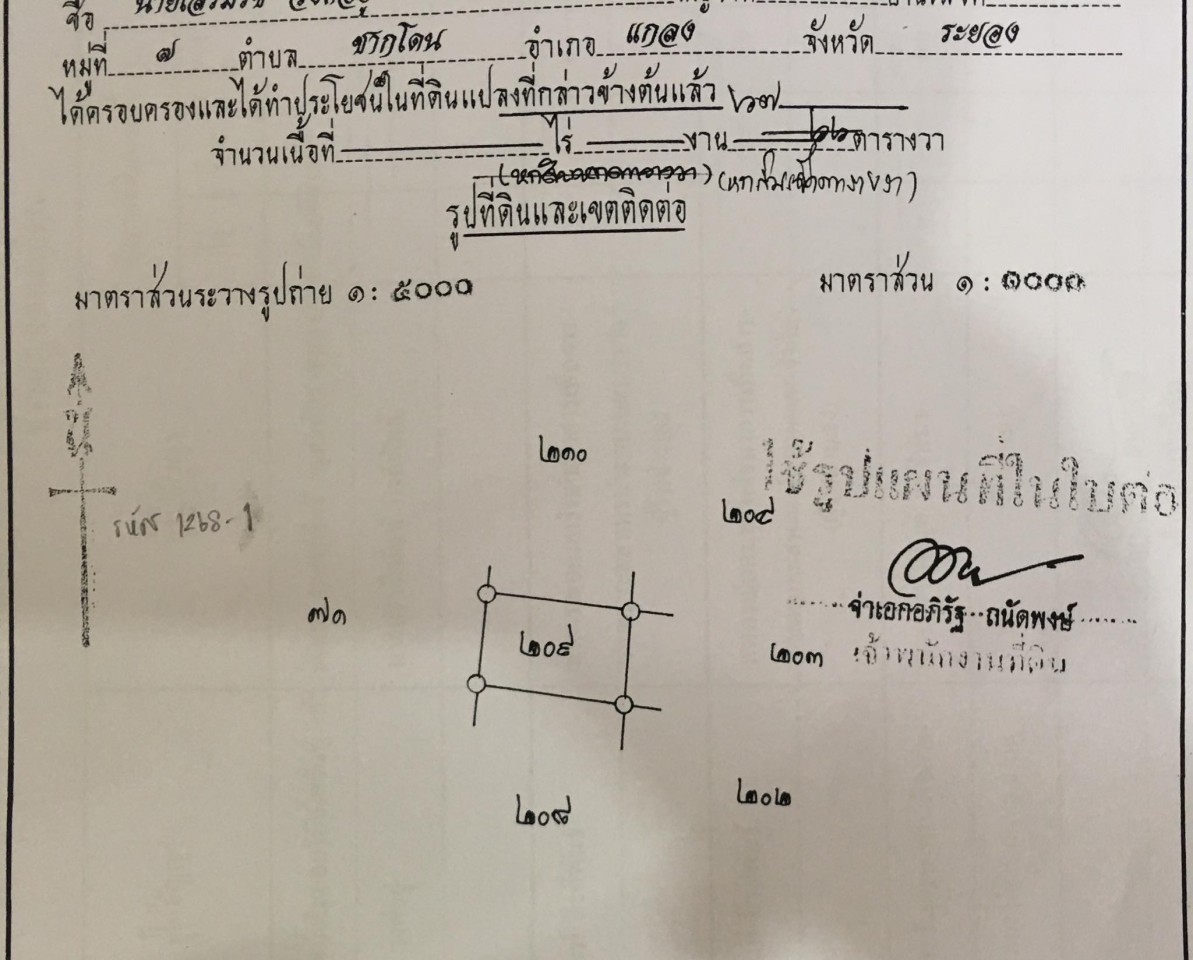 ชื่อ นาย
หมู่ที่ ๗ ตำบล ชากโดน อำเภอ แกลง จังหวัด ระยอง
ได้ครอบครองและได้ทำประโยชน์ในที่ดินแปลงที่กล่าวข้างต้นแล้ว ๖๗
จำนวนเนื้อที่ ไร่ งาน ตารางวา
รูปที่ดินและเขตติดต่อ
มาตราส่วนระวางรูปถ่าย ๑ : ๕๐๐๐ มาตราส่วน ๑ : ๑๐๐๐
น
๒๑๐
ใช้รูปแผนที่ในใบต่อ
๒๐๔
รหัส 1268-1
๗๑
๒๐๙
จ่าเอกอภิรัฐ ถนัดพงษ์
๒๐๓ เจ้าพนักงานที่ดิน
๒๐๒
๒๐๘